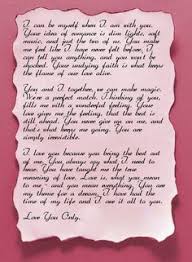 I can be myself when I am with you.
Your idea of romance is dim lights, soft
music, and just the two of us. You make
me feel like I have never felt before. I
can tell you anything, and you won't be
shocked. Your undying faith is what keeps
the flame of our love alive.
You and I together, we can make magic.
We're a perfect match. Thinking of you
fills me with a wonderful feeling. Your
love gives me the feeling, that the best
is still ahead. You never give up on me, and
that's what keeps me going. You are
simply irresistible.
I love you because you bring the best out
of me. You always say what I need to
hear. You have taught me the true
meaning of love. Love is, what you mean
to me - and you mean everything. You are
my theme for a dream. I have had the
time of my life and I owe it all to you.
Love You Only.